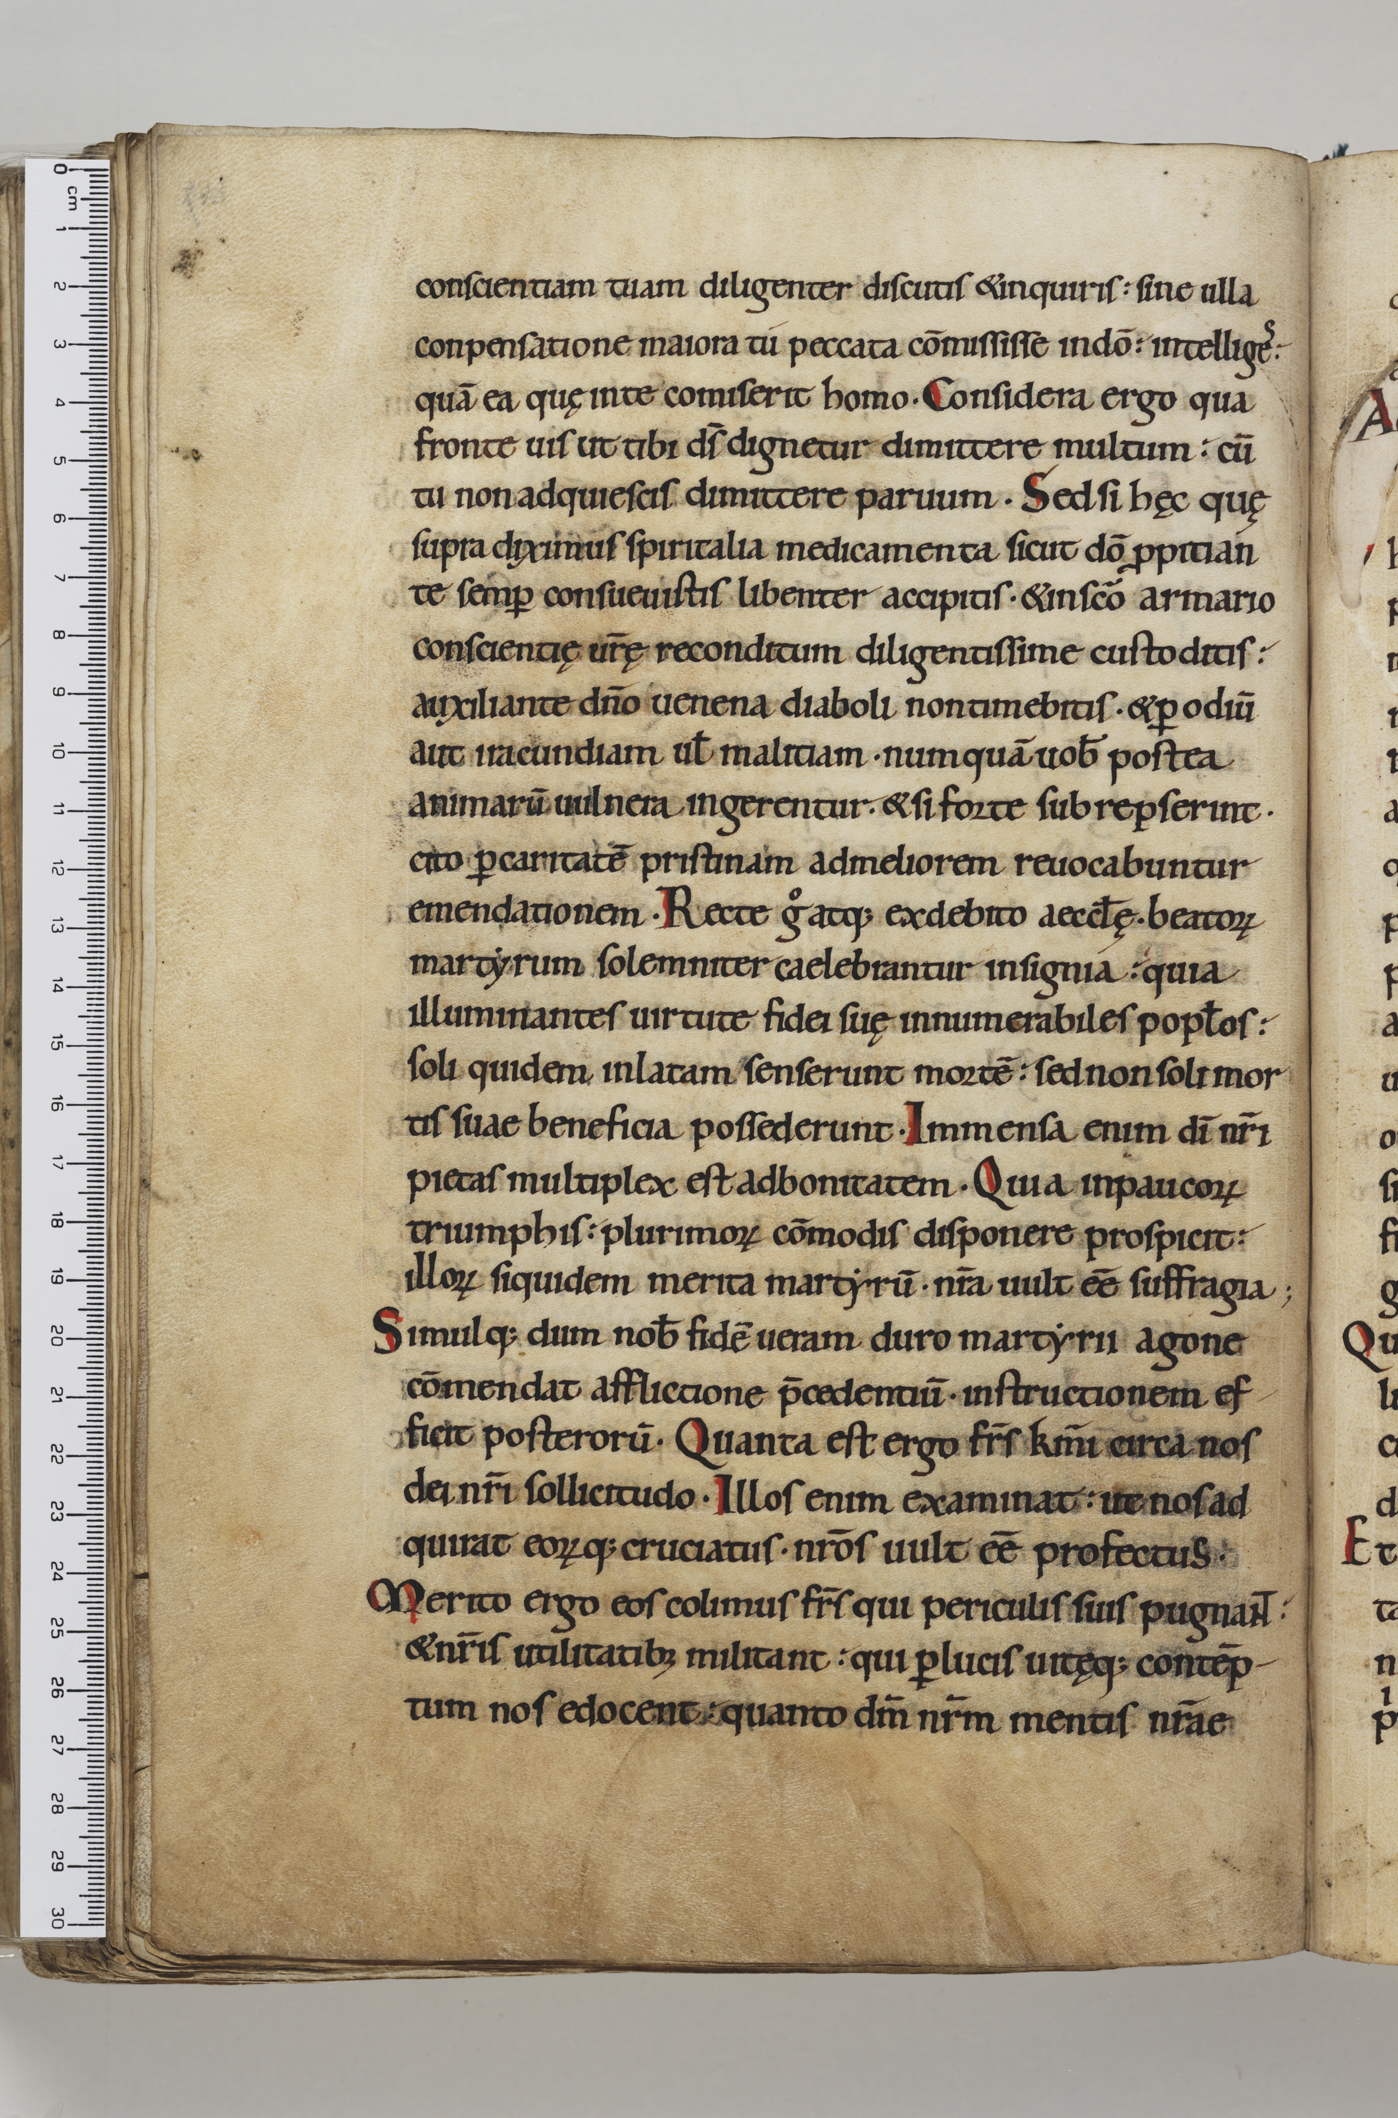 conscientiam tuam diligenter discutis &inquiris: sine ulla
conpensatione maiora tú peccata cōmisisse indō: intelligeˢ:
quā ea quę inte comiserit homo. Considera ergo qua
fronte uis ut tibi dś dignetur dimittere multum: cū
tu non adquiescis dimittere paruum. Sed si hęc quę
supra diximus spiritalia medicamenta sicut dō ꝓpitian
te semꝑ consueuistis libenter accipitis. &inscō armario
conscientię ur̄ę reconditum diligentissime custoditis:
auxiliante dn̄o uenena diaboli non timebitis. &ꝑ odiū
aut iracundiam ul̄ malitiam. numquā uob̄ postea
animarū uulnera ingerentur. &si forte subrepserint.
cito ꝑcaritatē pristinam admeliorem reuocabuntur
emendationem. Recte gͦ atq; exdebito aeccl̄ę. beatoꝝ
martyrum solemniter caelebrantur insignia: quia
illuminantes uirtute fidei suę innumerabiles popl̄os:
soli quidem inlatam senserunt mortē: sed non soli mor
tis suae beneficia possederunt. Immensa enim dī nr̄i
pietas multiplex est adbonitatem. Quia inpaucoꝝ
triumphis: plurimoꝝ cōmodis disponere prospicit:
illoꝝ siquidem merita martyrū. nr̄a uult eē suffragia;
Simulq; dum nob̄ fidē ueram duro martyrii agone
cōmendat afflictione p̄cedentiū. instructionem ef
ficit posterorū. Quanta est ergo fr̄s km̄i circa nos
dei nr̄i sollicitudo. Illos enim examinat: ut nos ad
quirat eoꝝq; cruciatus. nrōs uult eē profectus.
Merito ergo eos colimus fr̄s qui periculis suis pugnan̄t:
&nr̄is utilitatibꝫ militant: qui ꝑlucis uitęq; contēp-
tum nos edocent: quanto dm̄ nr̄m mentis nr̄ae